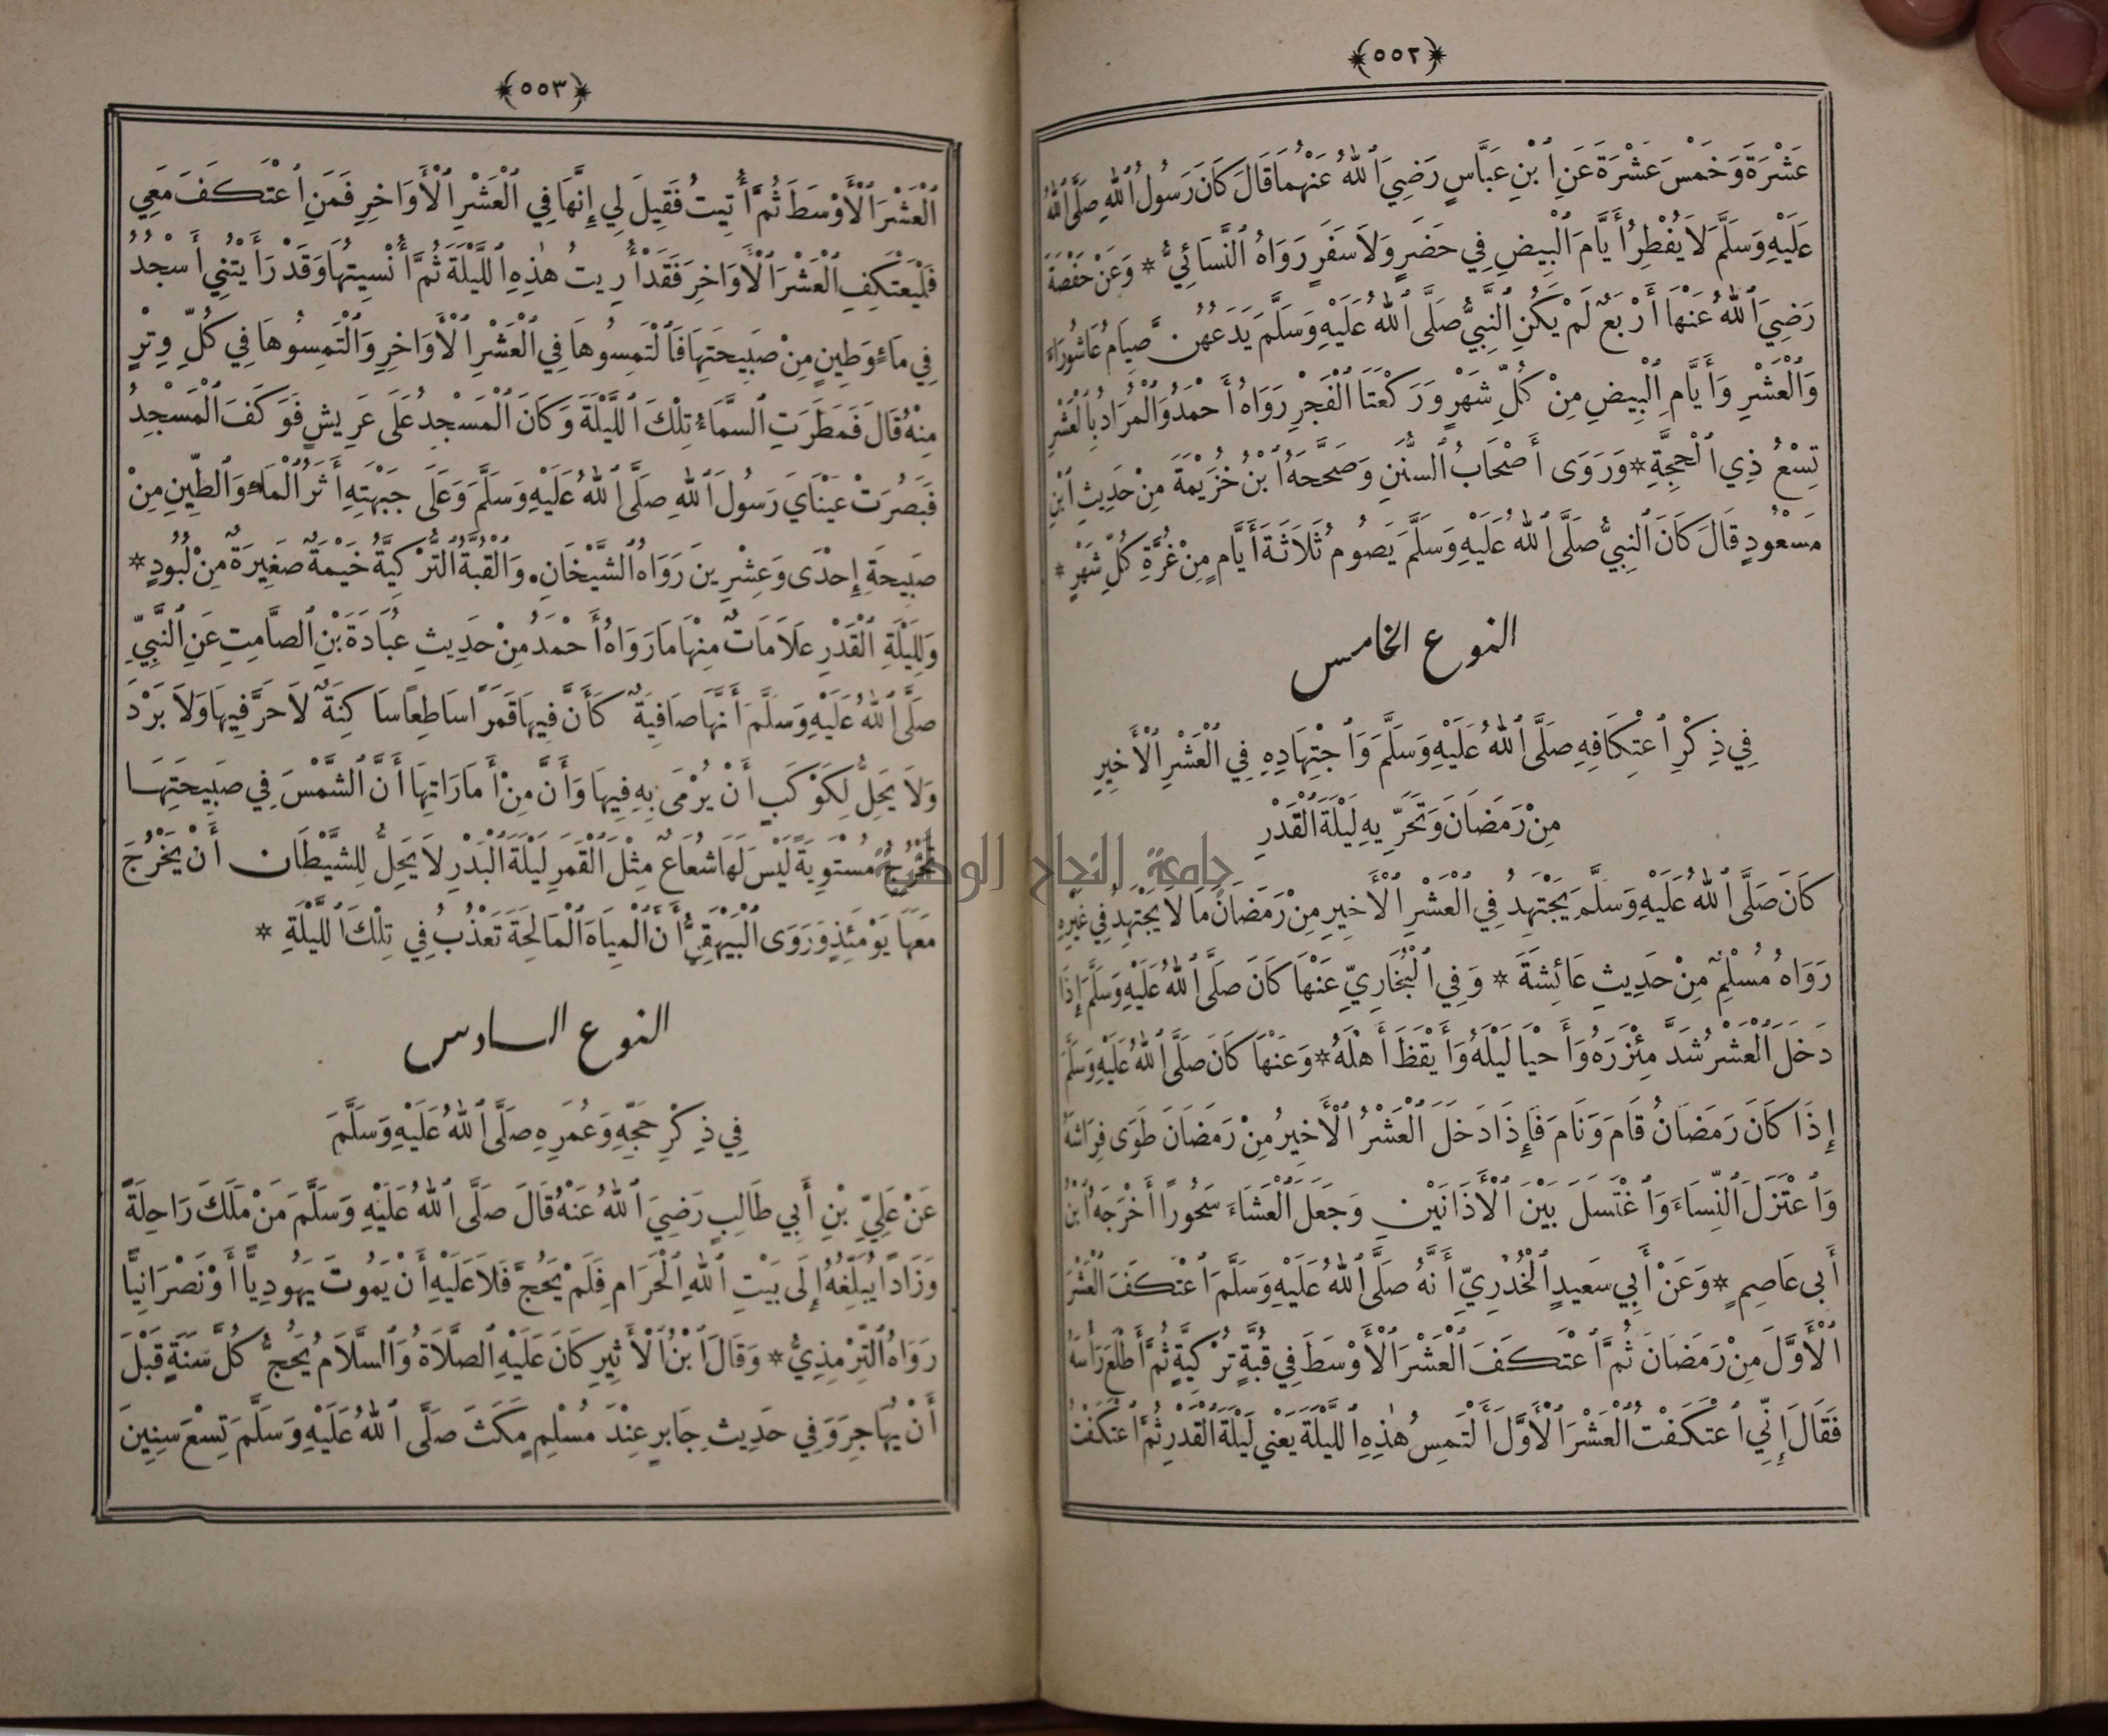 ﴿٥٥٢﴾
عَشْرَةَ وَخَمْسَ عَشْرَةَ عَنِ ٱبْنِ عَبَّاسٍ رَضِيَ ٱللهُ عَنْهُمَا قَالَ كَانَ رَسُولُ ٱللهِ صَلَّى ٱللهُ
عَلَيْهِ وَسَلَّمَ لاَ يُفْطِرُ أَيَّامَ ٱلْبِيضِ فِي حَضَرٍ وَلاَ سَفَرٍ رَوَاهُ ٱلنَّسَائِيُّ * وَعَنْ حَفْصَةَ
رَضِيَ ٱللهُ عَنْهَا أَرْبَعٌ لَمْ يَكُنِ ٱلنَّبِيُّ صَلَّى ٱللهُ عَلَيْهِ وَسَلَّمَ يَدَعُهُنَّ صِيَامُ عَاشُورَاءَ
وَٱلْعَشْرِ وَأَيَّامِ ٱلْبِيضِ مِنْ كُلِّ شَهْرٍ وَرَكْعَتَا ٱلْفَجْرِ رَوَاهُ أَحْمَدُ وَٱلْمُرَادُ بِٱلْعَشْرِ
تِسْعُ ذِي ٱلْحِجَّةِ * وَرَوَى أَصْحَابُ ٱلسُّنَنِ وَصَحَّحَهُ ٱبْنُ خُزَيْمَةَ مِنْ حَدِيثِ ٱبْنِ
مَسْعُودٍ قَالَ كَانَ ٱلنَّبِيُّ صَلَّى ٱللهُ عَلَيْهِ وَسَلَّمَ يَصُومُ ثَلاَثَةَ أَيَّامٍ مِنْ غُرَّةِ كُلِّ شَهْرٍ *
النوع الخامس
فِي ذِكْرِ ٱعْتِكَافِهِ صَلَّى ٱللهُ عَلَيْهِ وَسَلَّمَ وَٱجْتِهَادِهِ فِي ٱلْعَشْرِ ٱلْأَخِيرِ
مِنْ رَمَضَانَ وَتَحَرِّيهِ لَيْلَةَ ٱلْقَدْرِ
كَانَ صَلَّى ٱللهُ عَلَيْهِ وَسَلَّمَ يَجْتَهِدُ فِي ٱلْعَشْرِ ٱلْأَخِيرِ مِنْ رَمَضَانَ مَا لاَ يَجْتَهِدُ فِي غَيْرِهِ
رَوَاهُ مُسْلِمٌ مِنْ حَدِيثِ عَائِشَةَ * وَفِي ٱلْبُخَارِيِّ عَنْهَا كَانَ صَلَّى ٱللهُ عَلَيْهِ وَسَلَّمَ إِذَا
دَخَلَ ٱلْعَشْرُ شَدَّ مِئْزَرَهُ وَأَحْيَا لَيْلَهُ وَأَيْقَظَ أَهْلَهُ * وَعَنْهَا كَانَ صَلَّى ٱللهُ عَلَيْهِ وَسَلَّمَ
إِذَا كَانَ رَمَضَانُ قَامَ وَنَامَ فَإِذَا دَخَلَ ٱلْعَشْرُ ٱلْأَخِيرُ مِنْ رَمَضَانَ طَوَى فِرَاشَهُ
وَٱعْتَزَلَ ٱلنِّسَاءَ وَٱغْتَسَلَ بَيْنَ ٱلْأَذَانَيْنِ وَجَعَلَ ٱلْعَشَاءَ سَحُورًا أَخْرَجَهُ ٱبْنُ
أَبِي عَاصِمٍ * وَعَنْ أَبِي سَعِيدٍ ٱلْخُدْرِيِّ أَنَّهُ صَلَّى ٱللهُ عَلَيْهِ وَسَلَّمَ ٱعْتَكَفَ ٱلْعَشْرَ
ٱلْأَوَّلَ مِنْ رَمَضَانَ ثُمَّ ٱعْتَكَفَ ٱلْعَشْرَ ٱلْأَوْسَطَ فِي قُبَّةٍ تُرْكِيَّةٍ ثُمَّ أَطْلَعَ رَأْسَهُ
فَقَالَ إِنِّي ٱعْتَكَفْتُ ٱلْعَشْرَ ٱلْأَوَّلَ أَلْتَمِسُ هٰذِهِ ٱللَّيْلَةَ يَعْنِي لَيْلَةَ ٱلْقَدْرِ ثُمَّ ٱعْتَكَفْتُ
﴿٥٥٣﴾
ٱلْعَشْرَ ٱلْأَوْسَطَ ثُمَّ أُتِيتُ فَقِيلَ لِي إِنَّهَا فِي ٱلْعَشْرِ ٱلْأَوَاخِرِ فَمَنِ ٱعْتَكَفَ مَعِي
فَلْيَعْتَكِفِ ٱلْعَشْرَ ٱلْأَوَاخِرَ فَقَدْ أُرِيتُ هٰذِهِ ٱللَّيْلَةَ ثُمَّ أُنْسِيتُهَا وَقَدْ رَأَيْتُنِي أَسْجُدُ
فِي مَاءٍ وَطِينٍ مِنْ صَبِيحَتِهَا فَٱلْتَمِسُوهَا فِي ٱلْعَشْرِ ٱلْأَوَاخِرِ وَٱلْتَمِسُوهَا فِي كُلِّ وِتْرٍ
مِنْهُ قَالَ فَمَطَرَتِ ٱلسَّمَاءُ تِلْكَ ٱللَّيْلَةَ وَكَانَ ٱلْمَسْجِدُ عَلَى عَرِيشٍ فَوَكَفَ ٱلْمَسْجِدُ
فَبَصُرَتْ عَيْنَايَ رَسُولَ ٱللهِ صَلَّى ٱللهُ عَلَيْهِ وَسَلَّمَ وَعَلَى جَبْهَتِهِ أَثَرُ ٱلْمَاءِ وَٱلطِّينِ مِنْ
صَبِيحَةِ إِحْدَى وَعِشْرِينَ رَوَاهُ ٱلشَّيْخَانِ . وَٱلْقُبَّةُ ٱلتُّرْكِيَّةُ خَيْمَةٌ صَغِيرَةٌ مِنْ لُبُودٍ *
وَلِلَيْلَةِ ٱلْقَدْرِ عَلاَمَاتٌ مِنْهَا مَا رَوَاهُ أَحْمَدُ مِنْ حَدِيثِ عُبَادَةَ بْنِ ٱلصَّامِتِ عَنِ ٱلنَّبِيِّ
صَلَّى ٱللهُ عَلَيْهِ وَسَلَّمَ أَنَّهَا صَافِيَةٌ كَأَنَّ فِيهَا قَمَرًا سَاطِعًا سَاكِنَةٌ لاَ حَرَّ فِيهَا وَلاَ بَرْدَ
وَلاَ يَحِلُّ لِكَوْكَبٍ أَنْ يُرْمَى بِهِ فِيهَا وَأَنَّ مِنْ أَمَارَاتِهَا أَنَّ ٱلشَّمْسَ فِي صَبِيحَتِهَا
تَخْرُجُ مُسْتَوِيَةً لَيْسَ لَهَا شُعَاعٌ مِثْلَ ٱلْقَمَرِ لَيْلَةَ ٱلْبَدْرِ لاَ يَحِلُّ لِلشَّيْطَانِ أَنْ يَخْرُجَ
مَعَهَا يَوْمَئِذٍ وَرَوَى ٱلْبَيْهَقِيُّ أَنَّ ٱلْمِيَاهَ ٱلْمَالِحَةَ تَعْذُبُ فِي تِلْكَ ٱللَّيْلَةِ *
النوع السادس
فِي ذِكْرِ حَجِّهِ وَعُمَرِهِ صَلَّى ٱللهُ عَلَيْهِ وَسَلَّمَ
عَنْ عَلِيِّ بْنِ أَبِي طَالِبٍ رَضِيَ ٱللهُ عَنْهُ قَالَ صَلَّى ٱللهُ عَلَيْهِ وَسَلَّمَ مَنْ مَلَكَ رَاحِلَةً
وَزَادًا يُبَلِّغُهُ إِلَى بَيْتِ ٱللهِ ٱلْحَرَامِ فَلَمْ يَحُجَّ فَلاَ عَلَيْهِ أَنْ يَمُوتَ يَهُودِيًّا أَوْ نَصْرَانِيًّا
رَوَاهُ ٱلتِّرْمِذِيُّ * وَقَالَ ٱبْنُ ٱلْأَثِيرِ كَانَ عَلَيْهِ ٱلصَّلاَةُ وَٱلسَّلاَمُ يَحُجُّ كُلَّ سَنَةٍ قَبْلَ
أَنْ يُهَاجِرَ وَفِي حَدِيثِ جَابِرٍ عِنْدَ مُسْلِمٍ مَكَثَ صَلَّى ٱللهُ عَلَيْهِ وَسَلَّمَ تِسْعَ سِنِينَ
جامعة النجاح الوطنية